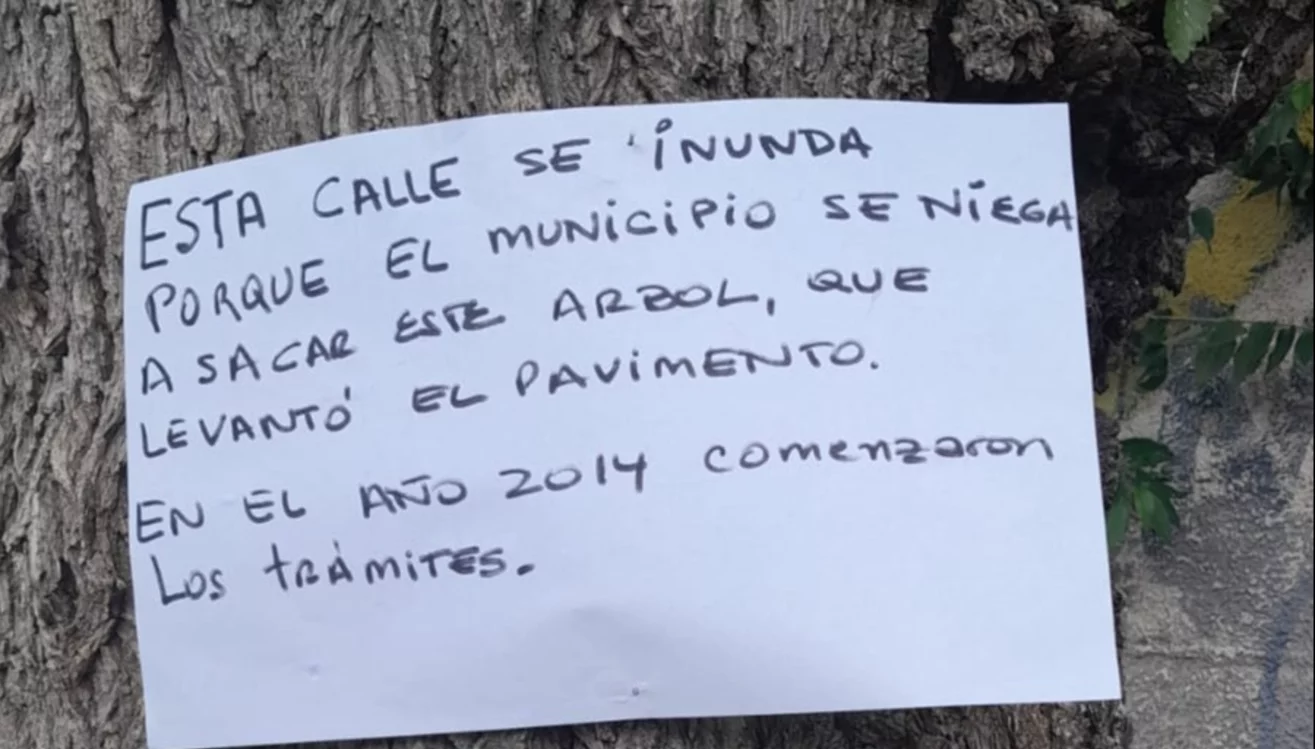 ESTA CALLE SE INUNDA
PORQUE EL MUNICIPIO SE NIEGA
A SACAR ESTE ARBOL, QUE
LEVANTÓ EL PAVIMENTO.
EN EL AÑO 2014 comenzaron
Los trÁMITES.